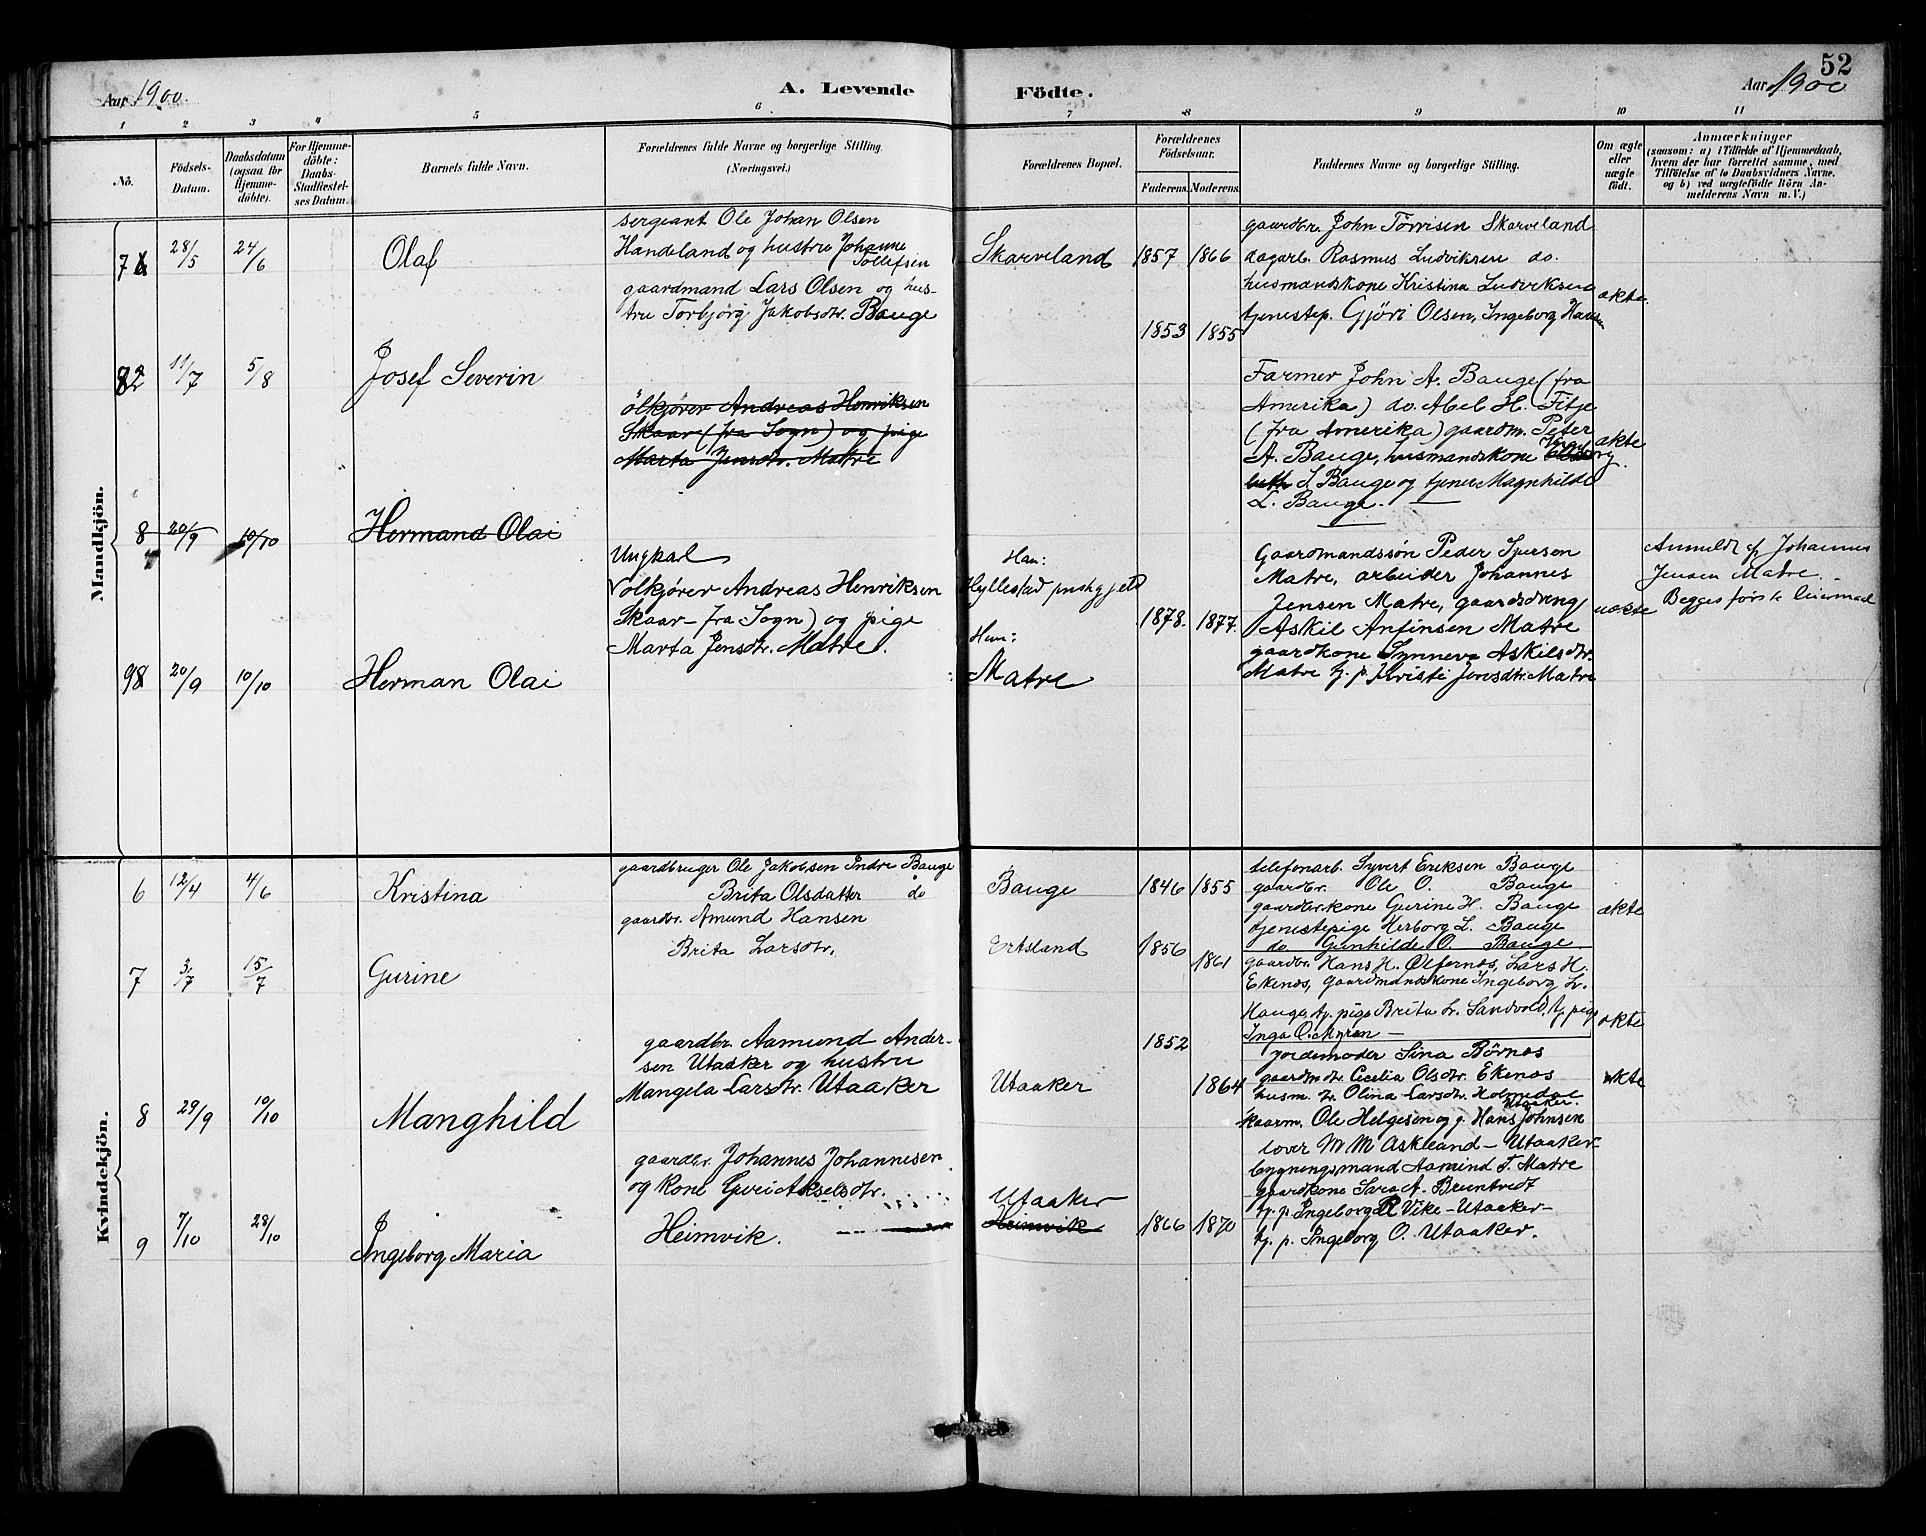 52
Aar 1900.
A. Levende Födte.
Aar 1900
1 2 3 4 5 6 7 8 9 10 11
No.
Födsels-Datum.
Daabsdatum (ogsaa for Hjemme-döbte).
For Hjemme-döbte: Daabs-Stadfæstel-ses Datum.
Barnets fulde Navn.
Forældrenes fulde Navne og borgerlige Stilling.
(Næringsvei.)
Forældrenes Bopæl.
Forældrenes Födselsaar.
Faderens. Moderens.
Faddernes Navne og borgerlige Stilling.
Om ægte eller uægte födt.
Anmærkninger
(saasom: a) i Tilfælde af Hjemmedaab, hvem der har forrettet samme, med Tilföielse af to Daabsvidners Navne, og b) ved uægtefödte Börn An-melderens Navn m. V.)
Mandkjön.
7 28/5 24/6 Olaf
sergeant Ole Johan Olsen
Handeland og hustru Johanne
Tollefsen
Skarveland 1857 1866
gaardbr. John Tørrisen Skarveland
dagarb. Rasmus Ludviksen do.
husmandskone Kristina Ludviksen
tjenestep. Gjöri Olsen, Ingeborg Hansen
ækte
82 11/7 5/8 Josef Severin
gaardmand Lars Olsen og hus-
tru Torbjörg Jakobsdtr. Bauge
1853 1855
Farmer John A. Bauge (fra
Amerika) do. Abel H. Fitje
(fra Amerika) gaardm. Peter
A. Bauge, husmandskone
S Bauge og tjener Magnhilde
L. Bauge.
ækte
8 20/9 10/10 Hermand Olai
ölkjörer Andreas Henriksen
Skaar (fra Sogn) og pige
Marta Jensdtr. Matre
98 20/9 10/10 Herman Olai
Ungkal
ølkjörer Andreas Henriksen
Skaar - fra Sogn) og pige
Marta Jensdtr. Matre.
Han:
Hyllestad prstgjeld
Hun:
Matre
1878. 1877.
Gaardmandssøn Peder Iversen
Matre, arbeider Johannes
Jensen Matre, gaardsdreng
Askil Anfinsen Matre
gaardkone Synneva Askilsdtr.
Matre tj. p. Kristi Jensdtr. Matre
uækte
Anmeldt af Johannes
Jensen Matre.
Begges første leiermaal
Kvindekjön.
6 12/4 4/6 Kristina
gaardbruger Ole Jakobsen Indre Bauge
Brita Olsdatter do
Bauge 1846 1855
telefonarb. Syvert Eriksen Bauge
gaardbr. Ole O. Bauge
gaardbrkone Gurine H. Bauge
tjenestepige Herborg L. Bauge
do Gunhilde O. Bauge.
ækte
7 3/7 15/7 Gurine
gaardbr. Amund Hansen
Brita Larsdtr.
Ertsland 1856 1861
gaardbr. Hans H. Ølfernæs, Lars H.
Ekenæs, gaardmandskone Ingeborg Lr.
Hauge, tj. pige Brita Lr. Sandvold, tj pige
Inga O. Myren
ækte
8 29/9 10/10 Manghild
gaardbr. Aamund Ander-
sen Utaaker og hustru
Mangela Larsdtr. Utaaker
Utaaker 1852 1864
jordemoder Sina Børnæs
gaardmdtr. Cecelia Olsdtr. Ekenæs
husm. dr. Olina Larsdtr. Holmedal
kaarm. Ole Helgesen og g. Hans Johnsen
Utaaker.
ækte
9 7/10 28/10 Ingeborg Maria
gaardbr. Johannes Johannesen
og kone Guri Akselsdtr.
Heimvik.
Utaaker
Heimvik
1866 1870
lover M M Askeland - Utaaker
bygningsmand Aamund T. Matre
gaardkone Sara A. Bruntvedt
tj. p Ingeborg R Vike - Utaaker -
tj. p. Ingeborg O. Utaaker.